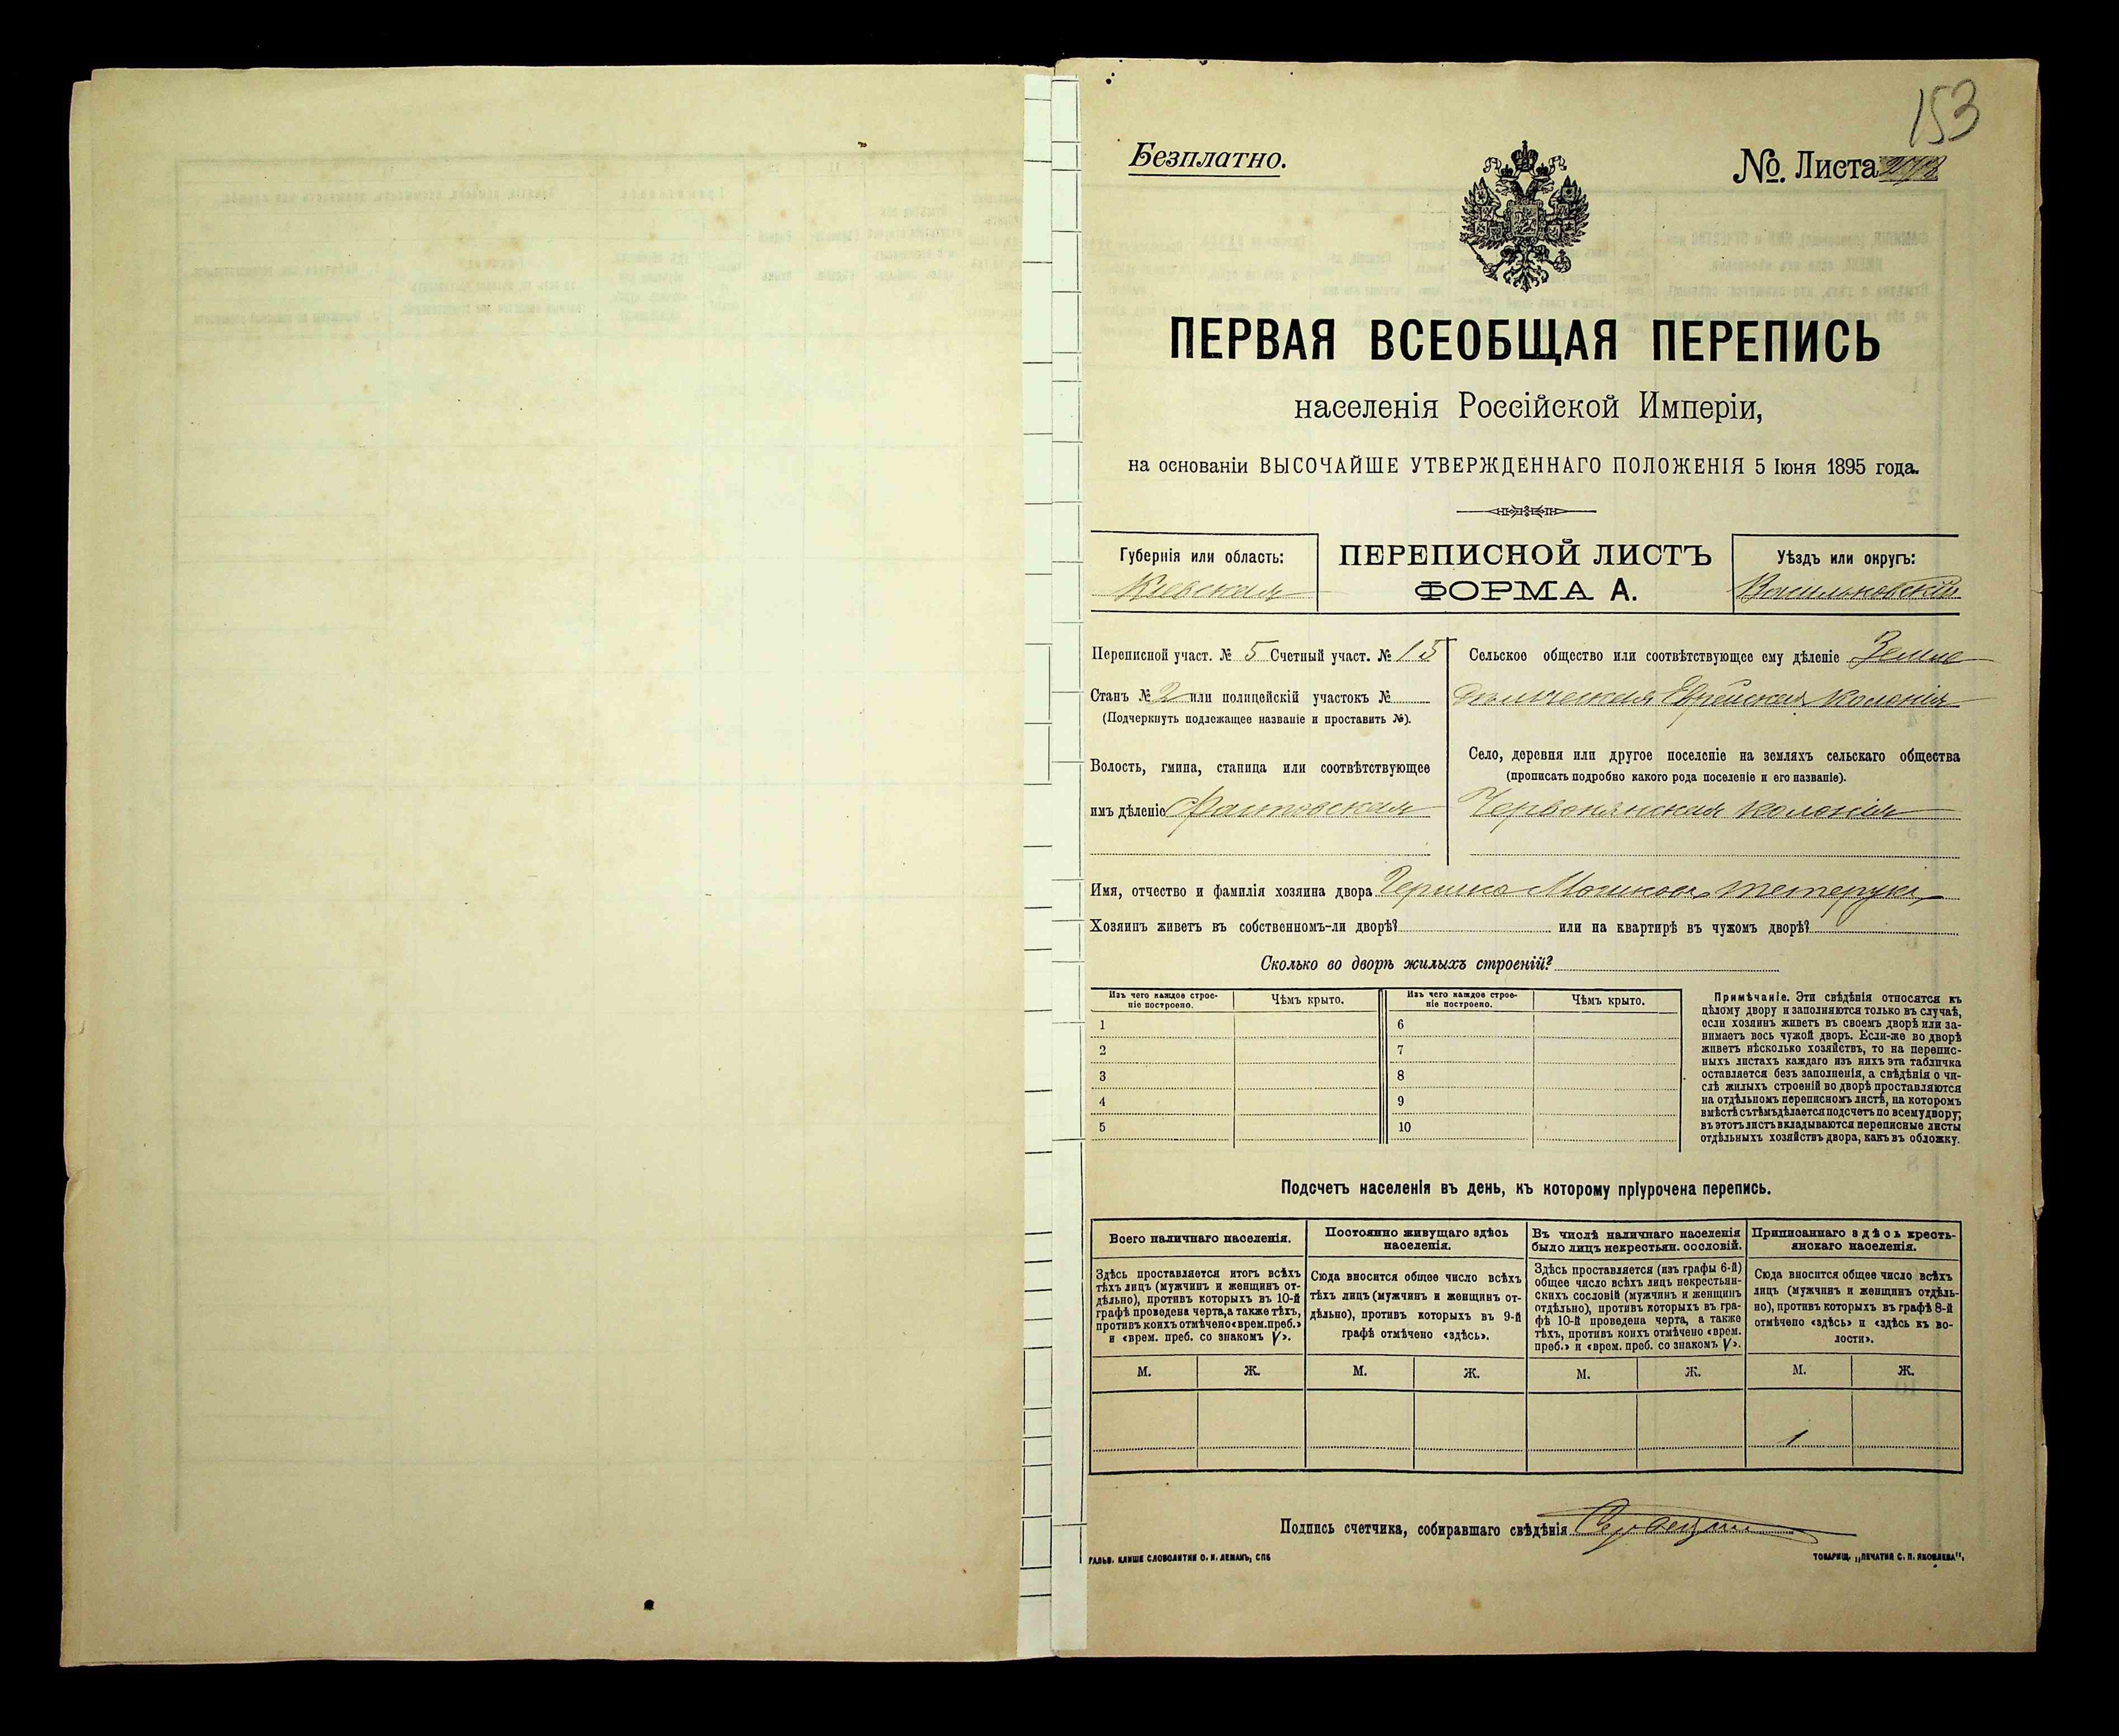 153
Безплатно.
№. Листа
ПЕРВАЯ ВСЕОБЩАЯ ПЕРЕПИСЬ
населенія Россійской Имперіи,
на основаніи ВЫСОЧАЙШЕ УТВЕРЖДЕННАГО ПОЛОЖЕНІЯ 5 Іюня 1895 года.
Губернія или область:
Кіевская
ПЕРЕПИСНОЙ ЛИСТЪ
ФОРМА А.
Уѣздъ или округъ:
Васильковскій
Переписной участ. № 5 Счетный участ. № 15
Станъ № 2 или полицейскій участокъ №
(Подчеркнуть подлежащее названіе и проставить №).
Волость, гмина, станица или соотвѣтствующее
имъ дѣленіе
Сельское общество или соотвѣтствующее ему дѣленіе Земле
дѣльческая Еврейская колонія
Село, деревня или другое поселеніе на земляхъ сельскаго общества
(прописать подробно какого рода поселеніе и его названіе).
Червонянская колонія
Имя, отчество и фамилія хозяина двора Гершко Мошковъ Тетерукъ
Хозяинъ живетъ въ собственномъ-ли дворѣ? или на квартирѣ въ чужомъ дворѣ?
Сколько во дворѣ жилыхъ строеній?
Изъ чего каждое строе-
ніе построено.
Чѣмъ крыто.
Изъ чего каждое строе-
ніе построено.
Чѣмъ крыто.
1 6
2 7
3 8
4 9
5 10
Примѣчаніе. Эти свѣдѣнія относятся къ
цѣлому двору и заполняются только въ случаѣ,
если хозяинъ живетъ въ своемъ дворѣ или за-
нимаетъ весь чужой дворъ. Если-же во дворѣ
живетъ нѣсколько хозяйствъ, то на перепис-
ныхъ листахъ каждаго изъ нихъ эта табличка
оставляется безъ заполненія, а свѣдѣнія о чи-
слѣ жилыхъ строеній во дворѣ проставляются
на отдѣльномъ переписномъ листѣ, на которомъ
вмѣстѣ съ тѣмъ дѣлается подсчетъ по всему двору;
въ этотъ листъ вкладываются переписные листы
отдѣльныхъ хозяйствъ двора, какъ въ обложку.
Подсчетъ населенія въ день, къ которому пріурочена перепись.
Всего наличнаго населенія.
Здѣсь проставляется итогъ всѣхъ
тѣхъ лицъ (мужчинъ и женщинъ от-
дѣльно), противъ которыхъ въ 10-й
графѣ проведена черта, а также тѣхъ,
противъ коихъ отмѣчено «врем. преб.»
и «врем. преб. со знакомъ V».
М. Ж.
Постоянно живущаго здѣсь
населенія.
Сюда вносится общее число всѣхъ
тѣхъ лицъ (мужчинъ и женщинъ от-
дѣльно), противъ которыхъ въ 9-й
графѣ отмѣчено «здѣсь».
М. Ж.
Въ числѣ наличнаго населенія
было лицъ некрестьян. сословій.
Здѣсь проставляется (изъ графы 6-й)
общее число всѣхъ лицъ некрестьян-
скихъ сословій (мужчинъ и женщинъ
отдѣльно), противъ которыхъ въ гра-
фѣ 10-й проведена черта, а также
тѣхъ, противъ коихъ отмѣчено «врем.
преб.» и «врем. преб. со знакомъ V».
М. Ж.
Приписаннаго здѣсь кресть-
янскаго населенія.
Сюда вносится общее число всѣхъ
лицъ (мужчинъ и женщинъ отдѣль-
но), противъ которыхъ въ графѣ 8-й
отмѣчено «здѣсь» и «здѣсь къ во-
лости».
М. Ж.
1
Подпись счетчика, собиравшаго свѣдѣнія
ГАЛЬВ. КЛИШЕ СЛОВОЛИТНИ О. И. ЛЕМАНЪ, СПБ
ТОВАРИЩ. „ПЕЧАТНЯ С. П. ЯКОВЛЕВА“.